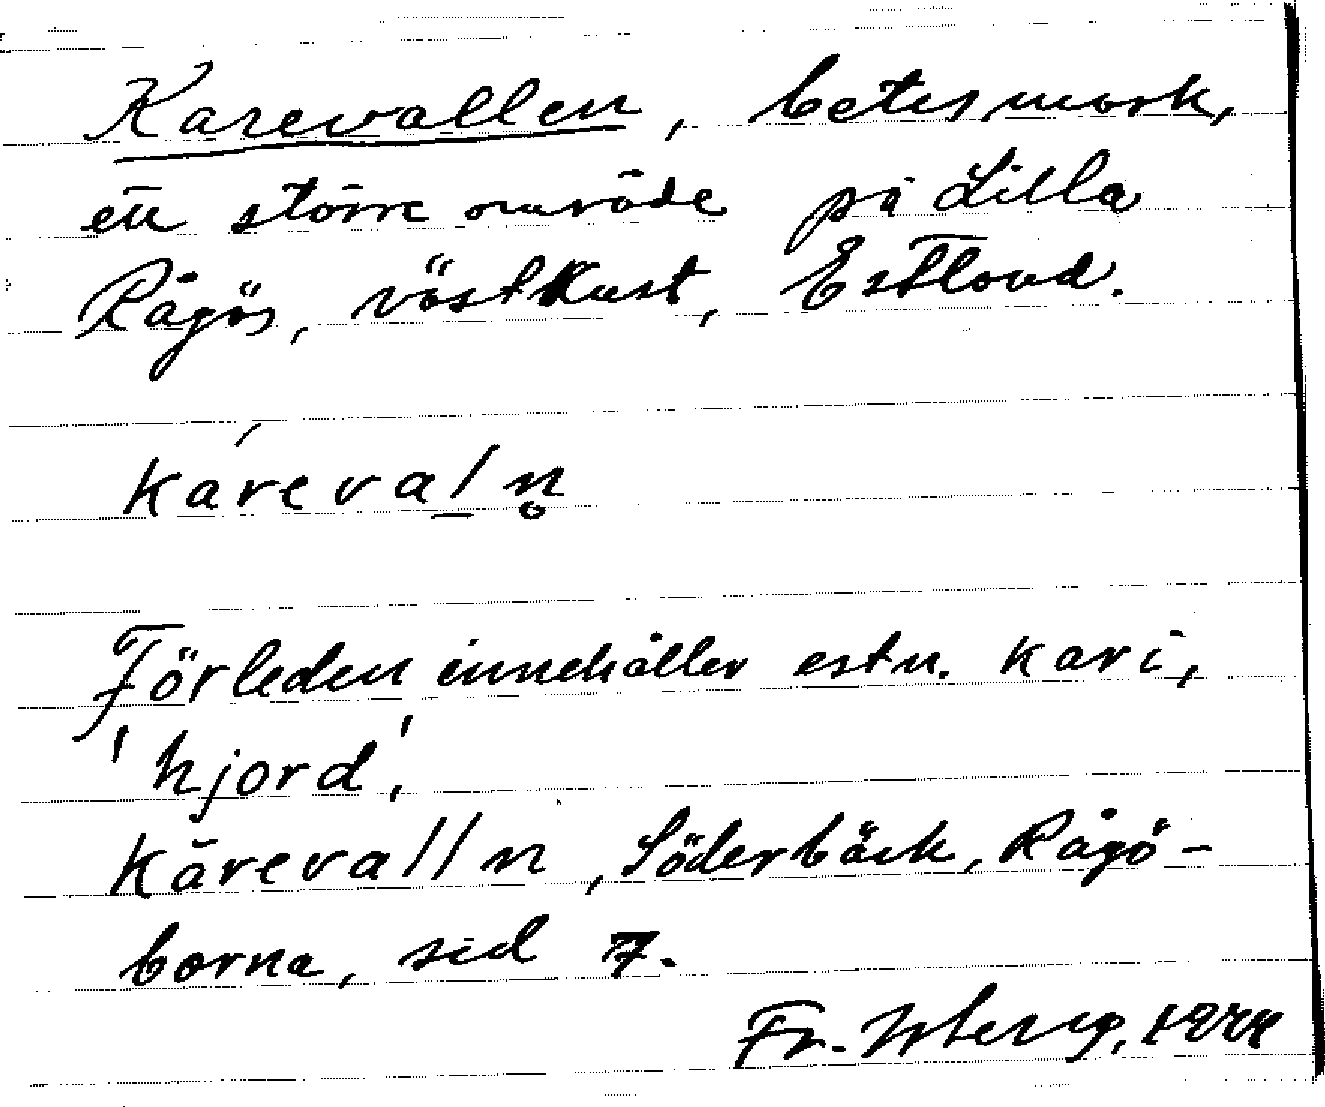 Karevallen, betesmark,
ett större område på Lilla
Rågös, västkust, Estland.
kárevaḻn̥
Förleden innehåller estn. kari,
'hjord'.
Kārevalln, Söderbäck, Rågö-
borna, sid 7.
Fr.